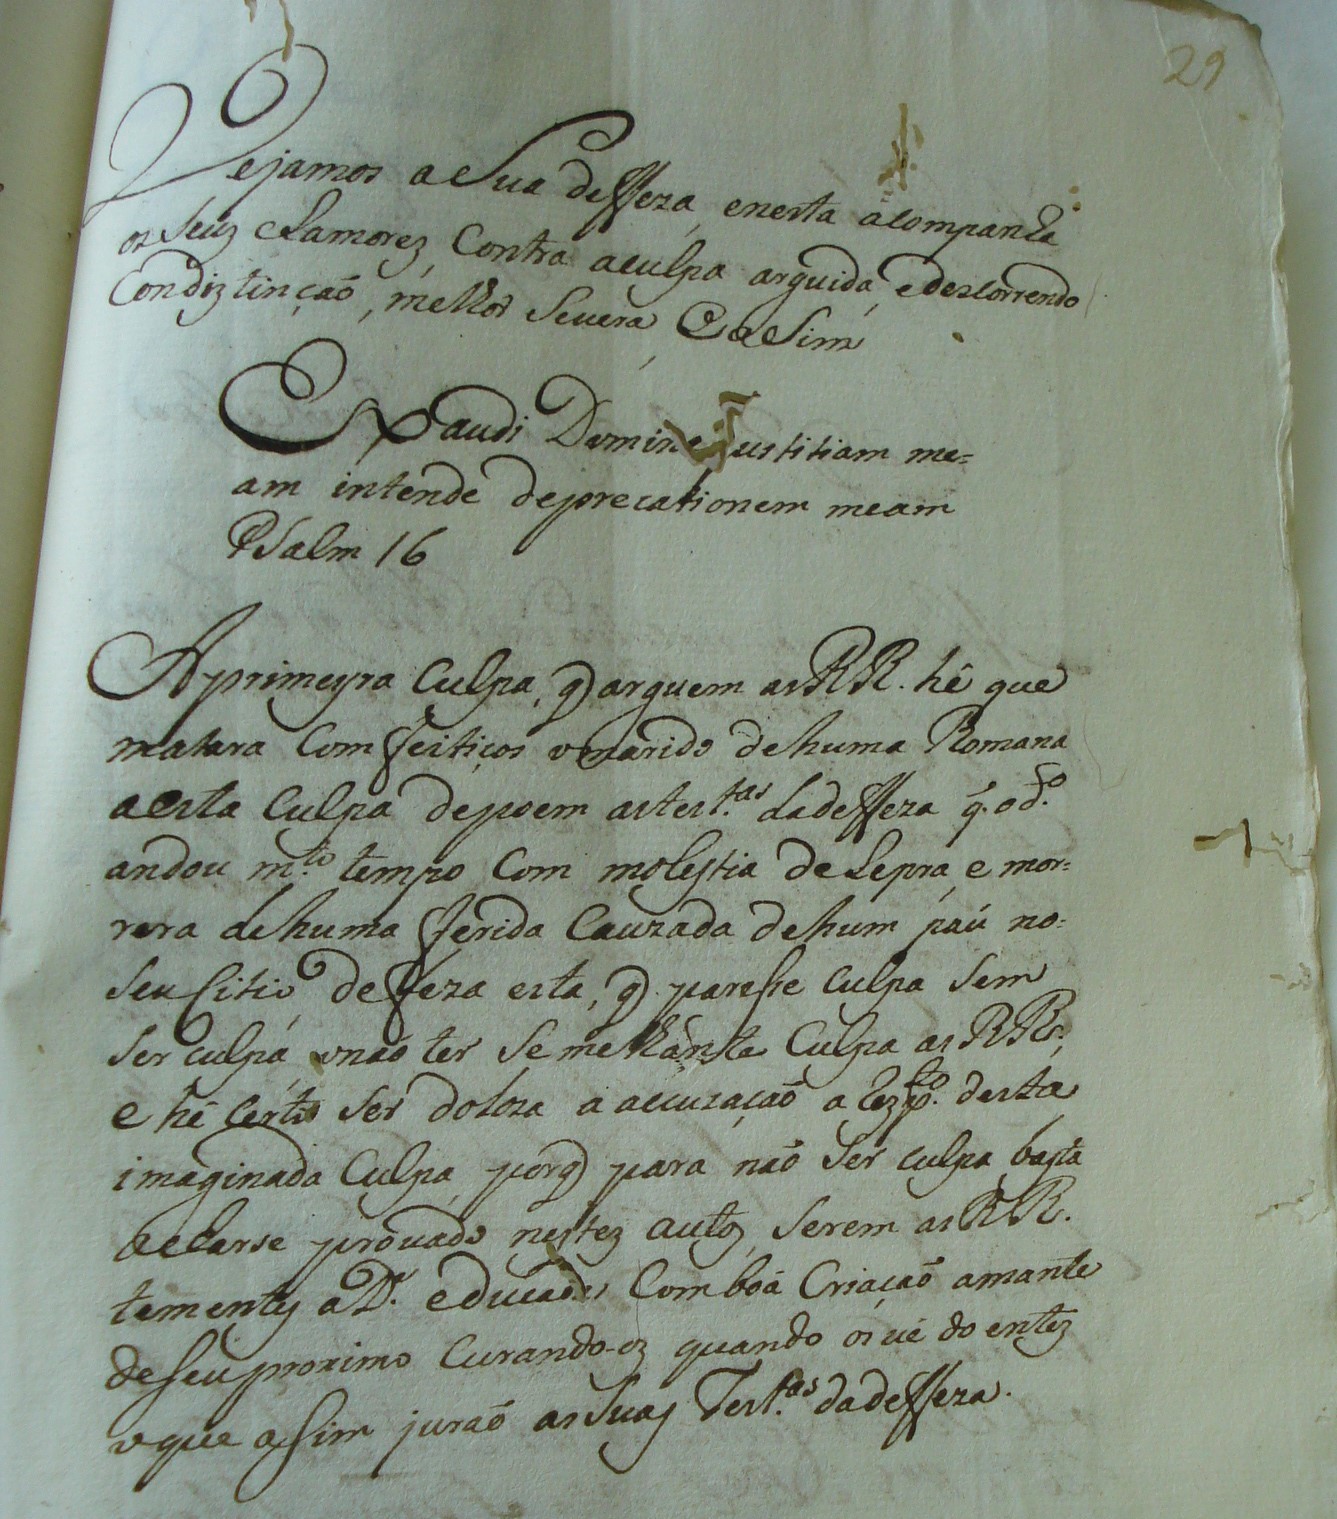 29
Vejamos a sua deffeza, enesta acompanha
os seus clamorez, contra aculpa arguida, edescorrendo
Condiztinção, melhor severa, E asim
Exaudi Domine justitiam me=
am intende deprecationem meam
Psalm 16
Aprimeyra Culpa, q̃ arguem asRR. hê que
matara Com feitiços omarido dehuma Romana
aesta Culpa depoem astest.as dadeffeza q̃. od.o
andou m.to tempo Com molestia deLepra, e mor:
rera dehuma ferida Cauzada dehum páu no:
seu sitio defeza esta, q̃ paresse culpa sem
ser culpa, onaõ ter semelhante Culpa asRR.
e hê certo ser doloza a acuzaçaõ a desta
imaginada Culpa, porq̃ para naõ ser culpa, basta
aclarse provado nestez autoz, serem asRR.
tementes aD.s educadas Comboã Criaçaõ amante
deseu proximo Curando-oz quando osvê doentez
oque assim juraõ assuas Test.as dadeffeza.